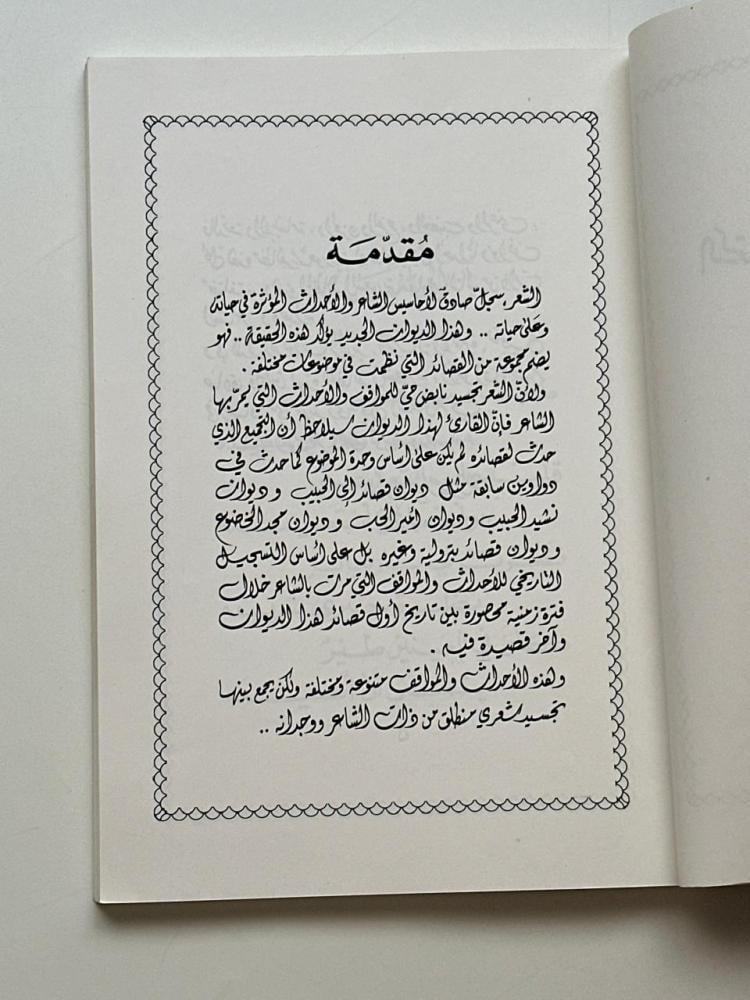 مُقدّمَة
الشعر، سجلّ صادق لأحاسيس الشاعر والأحداث المؤثرة في حياته
وعَلى حياته .. وهذا الديوان الجديد يؤكد هذه الحقيقة .. فهو
يضم مجموعة من القصائد التي نظمت في موضوعات مختلفة .
ولأنّ الشعر تجسيد نابض حيّ للمواقف والأحداث التي يمرّ بها
الشاعر فإنّ القارئ لهذا الديوان سيلاحظ أن التجميع الذي
حدث لقصائده لم يكن على أساس وحدة الموضوع كما حدث في
دواوين سابقة مثل ديوان قصائد إلى الحبيب وديوان
نشيد الحبيب وديوان أمير الحب وديوان مجد الخضوع
وديوان قصائد بترولية وغيره بل على أساس التسجيل
التاريخي للأحداث والمواقف التي مرت بالشاعر خلال
فترة زمنية محصورة بين تاريخ أول قصائد هذا الديوان
وآخر قصيدة فيه .
وهذه الأحداث والمواقف متنوعة ومختلفة ولكن يجمع بينها
تجسيد شعري منطلق من ذات الشاعر ووجدانه ..